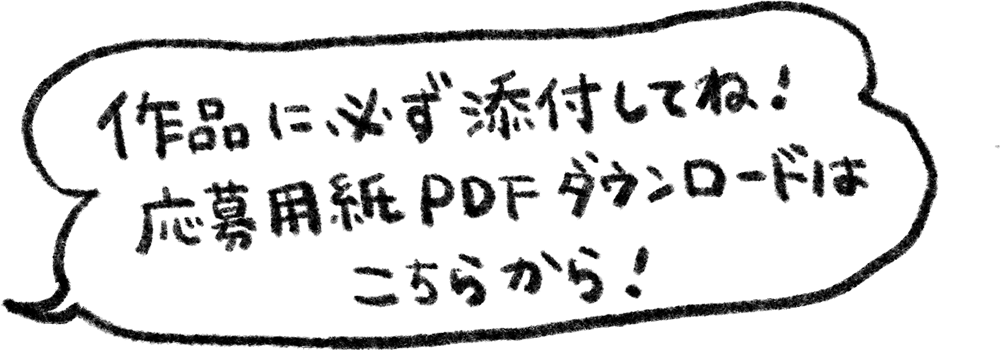 作品に必ず添付してね!
応募用紙PDFダウンロードは
こちらから!